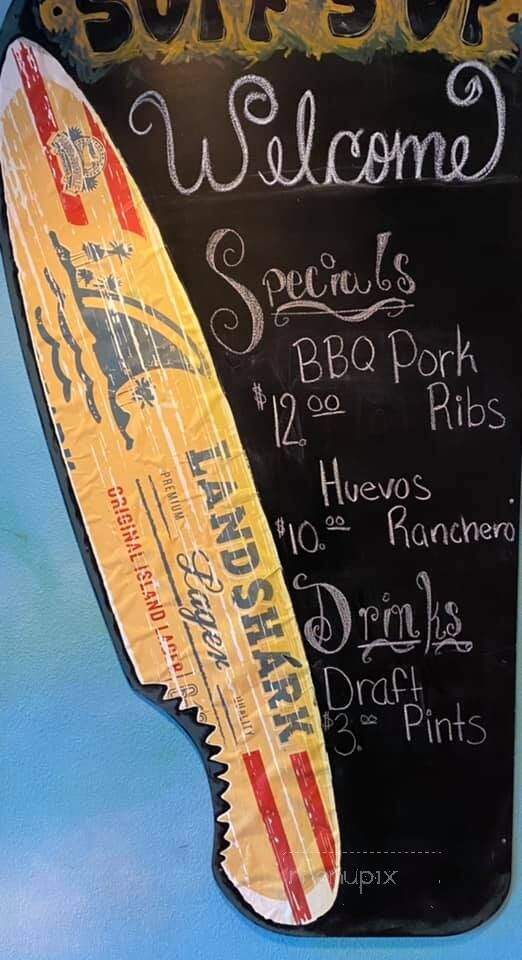 SURF'S UP
Welcome
Specials
BBQ Pork
$12.00 Ribs
Huevos
$10.00 Ranchero
Drinks
Draft
$3.00 Pints
PREMIUM
LANDSHARK
Lager
ORIGINAL ISLAND LAGER
QUALITY
menupix